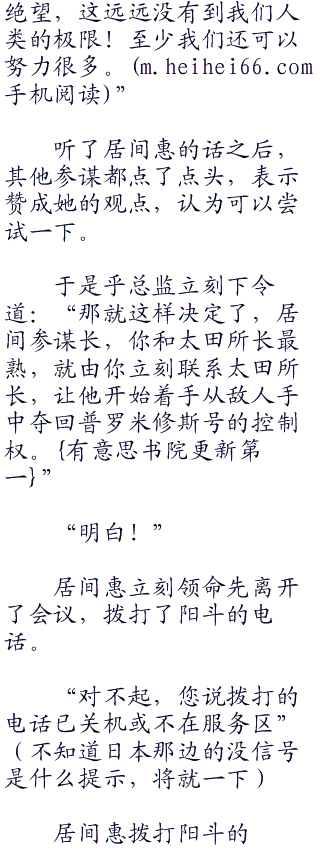 绝望，这远远没有到我们人
类的极限！至少我们还可以
努力很多。(m.heihei66.com
手机阅读)”
听了居间惠的话之后，
其他参谋都点了点头，表示
赞成她的观点，认为可以尝
试一下。
于是乎总监立刻下令
道：“那就这样决定了，居
间参谋长，你和太田所长最
熟，就由你立刻联系太田所
长，让他开始着手从敌人手
中夺回普罗米修斯号的控制
权。{有意思书院更新第
一}”
“明白！”
居间惠立刻领命先离开
了会议，拨打了阳斗的电
话。
“对不起，您说拨打的
电话已关机或不在服务区”
（不知道日本那边的没信号
是什么提示，将就一下）
居间惠拨打阳斗的